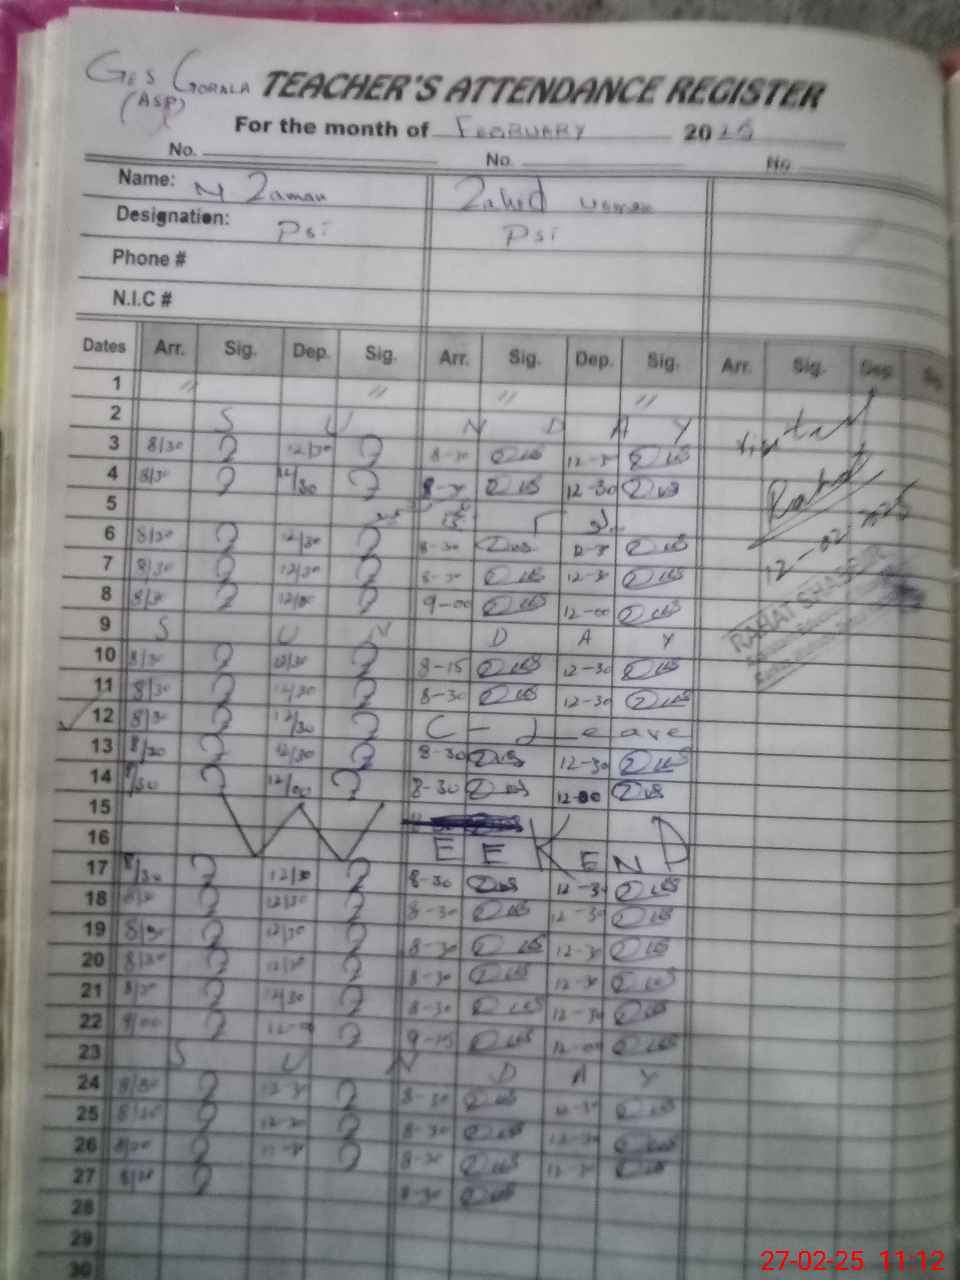 GES GORALA TEACHER'S ATTENDANCE REGISTER
(ASP)
For the month of FEBRUARY 2025
No. No. No.
Name: N Zaman Zahid usman
Designation: Psi Psi
Phone #
N.I.C #
Dates Arr. Sig. Dep. Sig. Arr. Sig. Dep. Sig. Arr. Sig. Dep. Sig.
1 " " " "
2 S U N D A Y
3 8/30 12/30 8-30 12-30
4 8/30 12/30 8-30 12-30
5
6 8/30 12/30 8-30 12-30
7 8/30 12/30 8-30 12-30
8 8/30 12/00 9-00 12-00
9 S U N D A Y
10 8/30 12/30 8-15 12-30
11 8/30 12/30 8-30 12-30
12 8/30 12/30 C - Leave
13 8/30 12/30 8-30 12-30
14 8/30 12/00 8-30 12-00
15
16 W E E K E N D
17 8/30 12/30 8-30 12-30
18 8/30 12/30 8-30 12-30
19 8/30 12/30 8-30 12-30
20 8/30 12/30 8-30 12-30
21 8/30 12/30 8-30 12-30
22 9/00 12-00 9-15 12-00
23 S U N D A Y
24 8/30 12-30 8-30 12-30
25 8/30 12-30 8-30 12-30
26 8/30 12-30 8-30 12-30
27 8/30 8-30
28
29
30
Rahat
12-02
RAHAT SHABBIR
27-02-25 11:12